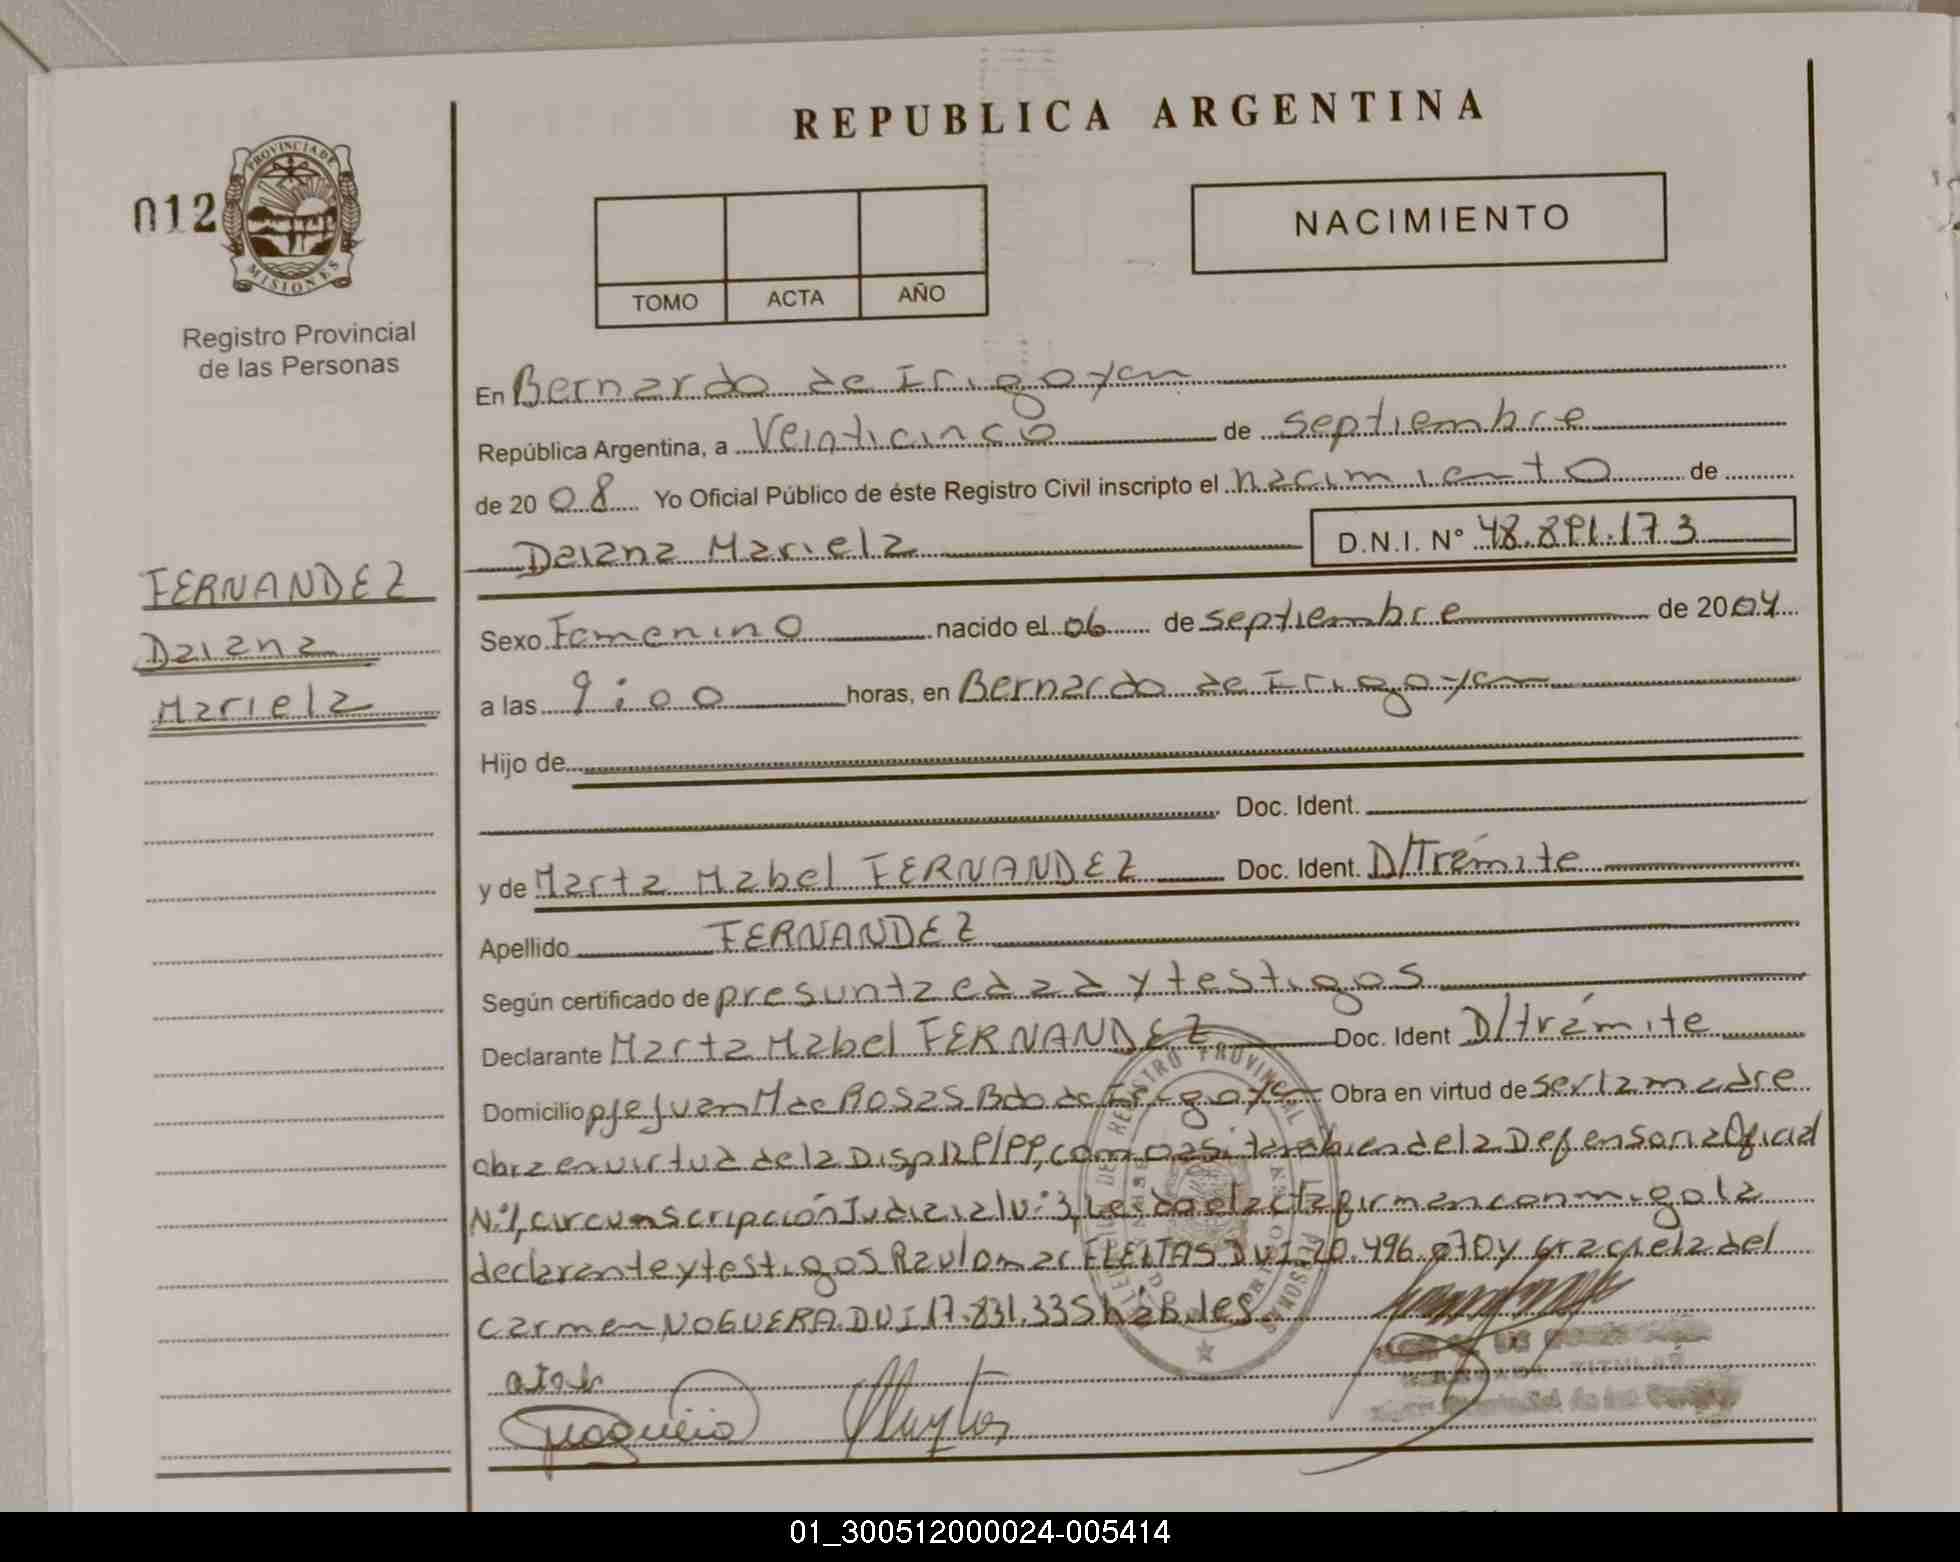 REPUBLICA ARGENTINA
012
PROVINCIA DE
MISIONES
Registro Provincial
de las Personas
NACIMIENTO
TOMO ACTA AÑO
En Bernardo de Irigoyen
República Argentina, a Veinticinco de septiembre
de 20 08 Yo Oficial Público de éste Registro Civil inscripto el nacimiento de
Daiana Mariela D.N.I. N° 48.891.173
FERNANDEZ
Daiana
Mariela
Sexo Femenino nacido el 06 de septiembre de 2004
a las 9:00 horas, en Bernardo de Irigoyen
Hijo de
Doc. Ident.
y de Marta Mabel FERNANDEZ Doc. Ident. D/Trámite
Apellido FERNANDEZ
Según certificado de presunta edad y testigos
Declarante Marta Mabel FERNANDEZ Doc. Ident D/trámite
Domicilio pje Juan M de Rosas Bdo de Irigoyen Obra en virtud de ser la madre
obra en virtud de la Disp como asi tambien de la Defensoria Oficial
N°1, circunscripción Judicial N°3, Leido el acta firman conmigo la
declarante y testigos Raul Omar FLEITAS DNI 20.496.070 y Graciela del
carmen NOGUERA DNI 17.831.335 hábiles
01_300512000024-005414